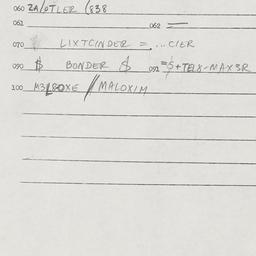 060 ZA/OTLER (838
061 062 =
070 LIXTCINDER = ...CIER
090 $ BONDER $ 091 =$+TELX-MAX3R
100 M3L80XE // MALOXIM